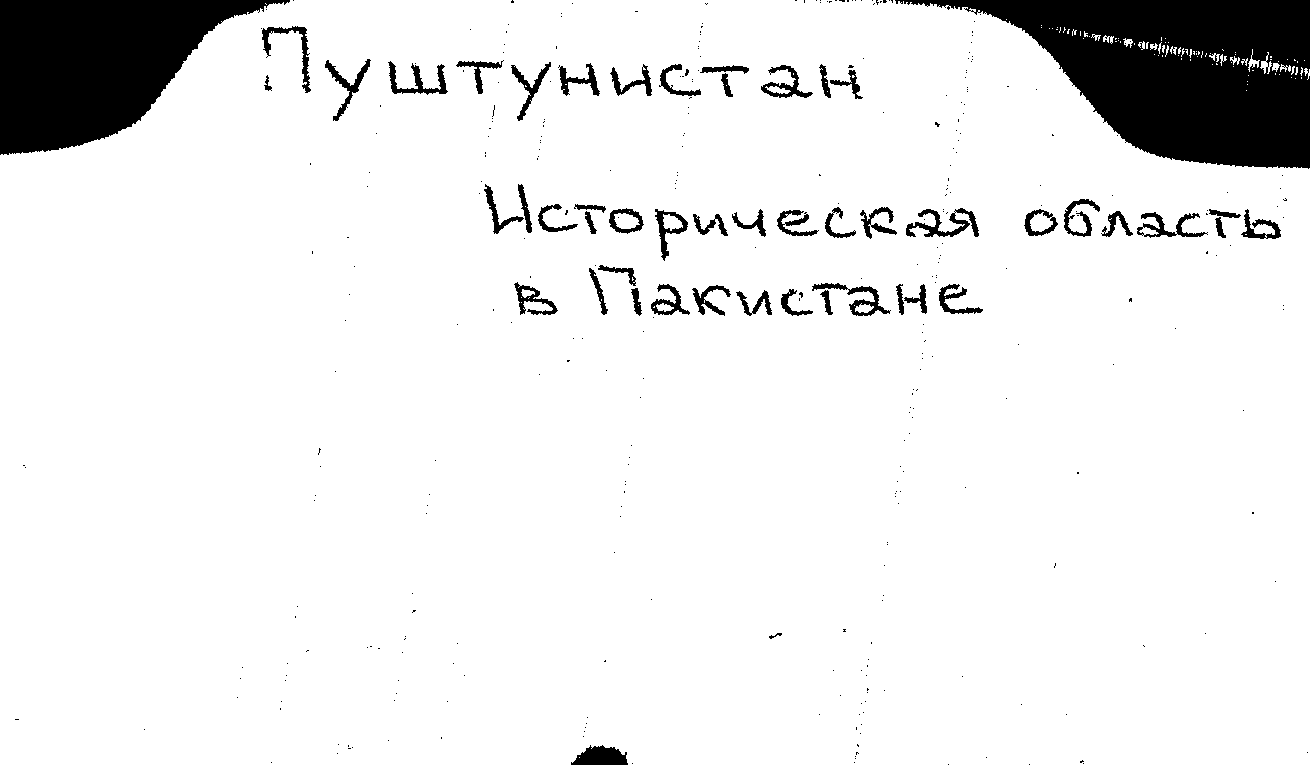 Пуштунистан
Историческая область
в Пакистане